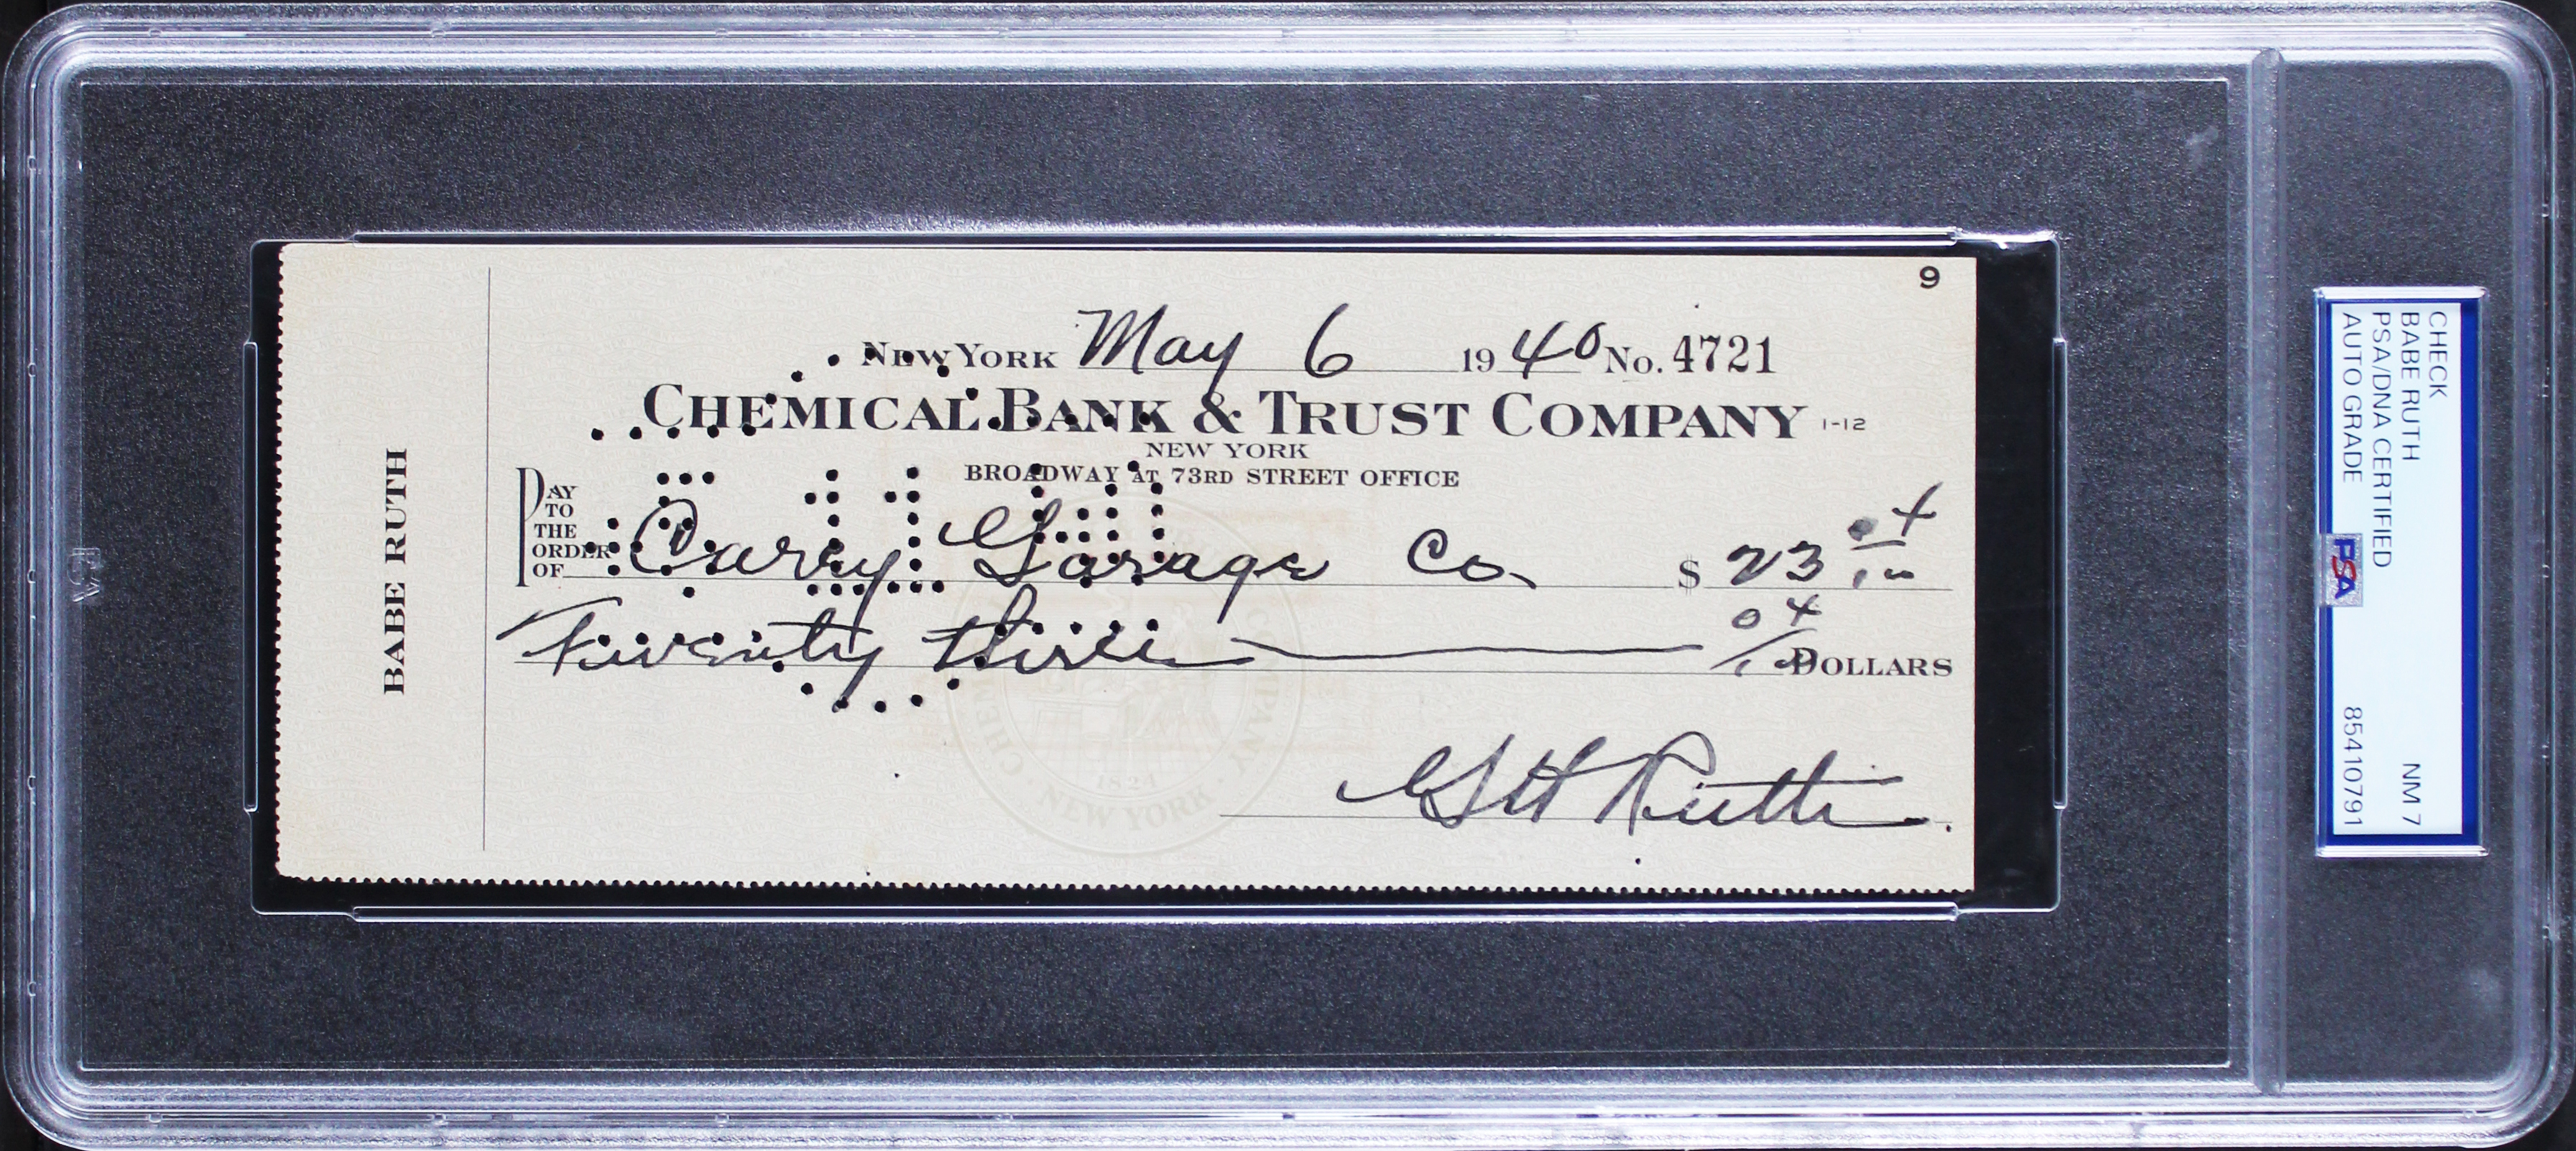 9
New York May 6 1940 No. 4721
Chemical Bank & Trust Company 1-12
NEW YORK
BROADWAY AT 73RD STREET OFFICE
PAY TO THE ORDER OF Carey Garage Co. $ 23 04/100
Twenty three 04/100 DOLLARS
GH Ruth.
BABE RUTH
CHEMICAL BANK & TRUST COMPANY
1824
NEW YORK
CHECK
BABE RUTH NM 7
PSA/DNA CERTIFIED
AUTO GRADE 85410791
PSA